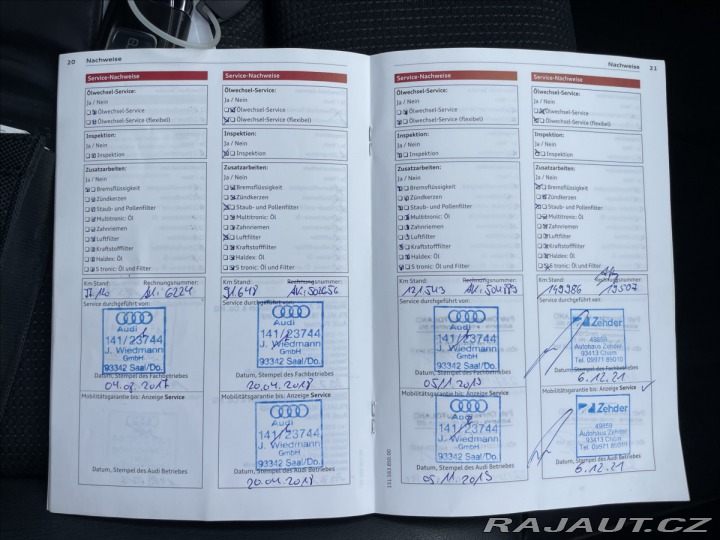 20 Nachweise
Service-Nachweise
Ölwechsel-Service:
Ja / Nein
Ölwechsel-Service
Ölwechsel-Service (flexibel)
Inspektion:
Ja / Nein
Inspektion
Zusatzarbeiten:
Ja / Nein
Bremsflüssigkeit
Zündkerzen
Staub- und Pollenfilter
Multitronic: Öl
Zahnriemen
Luftfilter
Kraftstofffilter
Haldex: Öl
S tronic: Öl und Filter
Km Stand: Rechnungsnummer:
Service durchgeführt von:
Audi
141/23744
J. Wiedmann
GmbH
93342 Saal/Do.
Datum, Stempel des Fachbetriebes
Mobilitätsgarantie bis: Anzeige Service
Datum, Stempel des Audi Betriebes
Service-Nachweise
Ölwechsel-Service:
Ja / Nein
Ölwechsel-Service
Ölwechsel-Service (flexibel)
Inspektion:
Ja / Nein
Inspektion
Zusatzarbeiten:
Ja / Nein
Bremsflüssigkeit
Zündkerzen
Staub- und Pollenfilter
Multitronic: Öl
Zahnriemen
Luftfilter
Kraftstofffilter
Haldex: Öl
S tronic: Öl und Filter
Km Stand: Rechnungsnummer:
91.648
Service durchgeführt von:
Audi
141/23744
J. Wiedmann
GmbH
93342 Saal/Do.
Datum, Stempel des Fachbetriebes
20.04.2018
Mobilitätsgarantie bis: Anzeige Service
141/23744
J. Wiedmann
GmbH
93342 Saal/Do.
Datum, Stempel des Audi Betriebes
20.04.2018
Nachweise 21
Service-Nachweise
Ölwechsel-Service:
Ja / Nein
Ölwechsel-Service
Ölwechsel-Service (flexibel)
Inspektion:
Ja / Nein
Inspektion
Zusatzarbeiten:
Ja / Nein
Bremsflüssigkeit
Zündkerzen
Staub- und Pollenfilter
Multitronic: Öl
Zahnriemen
Luftfilter
Kraftstofffilter
Haldex: Öl
S tronic: Öl und Filter
Km Stand: Rechnungsnummer:
Service durchgeführt von:
Audi
141/23744
J. Wiedmann
GmbH
93342 Saal/Do.
Datum, Stempel des Fachbetriebes
Mobilitätsgarantie bis: Anzeige Service
Audi
141/23744
J. Wiedmann
GmbH
93342 Saal/Do.
Datum, Stempel des Audi Betriebes
Service-Nachweise
Ölwechsel-Service:
Ja / Nein
Ölwechsel-Service
Ölwechsel-Service (flexibel)
Inspektion:
Ja / Nein
Inspektion
Zusatzarbeiten:
Ja / Nein
Bremsflüssigkeit
Zündkerzen
Staub- und Pollenfilter
Multitronic: Öl
Zahnriemen
Luftfilter
Kraftstofffilter
Haldex: Öl
S tronic: Öl und Filter
Km Stand: Rechnungsnummer:
149986 19507
Service durchgeführt von:
Zehder
49859
Autohaus Zehder
93413 Cham
Tel. 09971 85010
Datum, Stempel des Fachbetriebes
6.12.21
Mobilitätsgarantie bis: Anzeige Service
Zehder
49859
Autohaus Zehder
93413 Cham
Tel. 09971 85010
Datum, Stempel des Audi Betriebes
6.12.21
RAJAUT.CZ